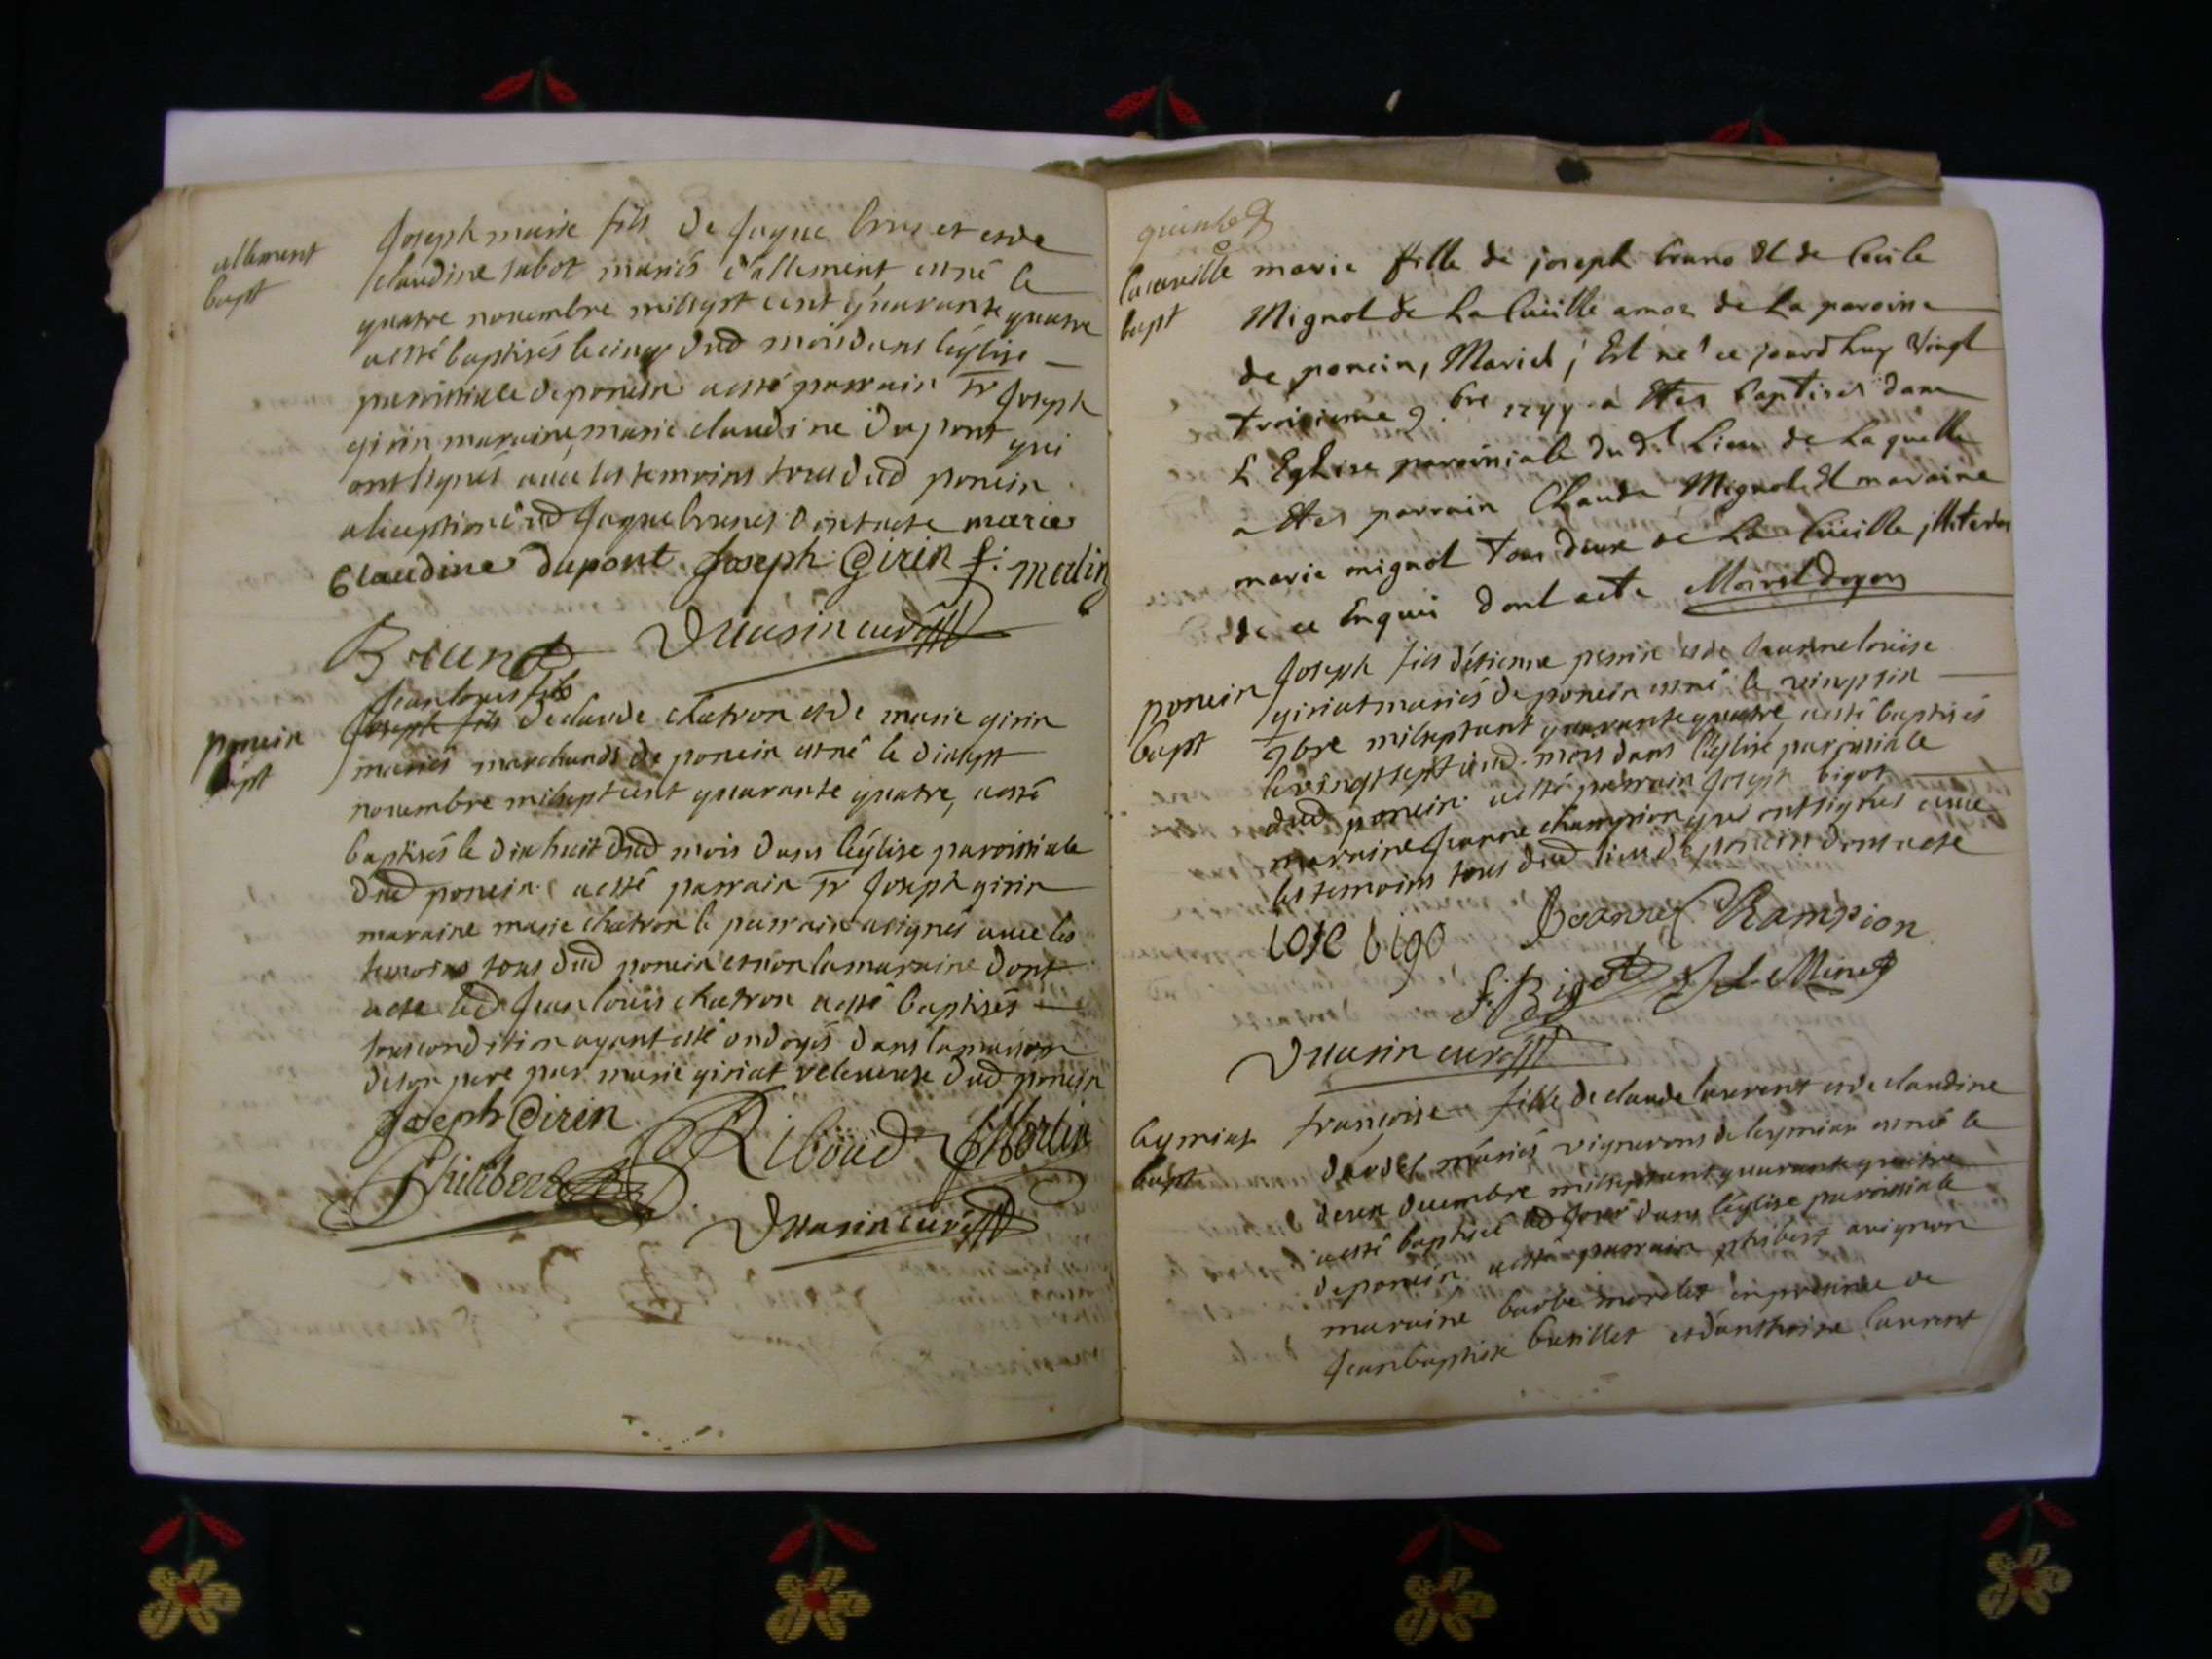 allement
bapt
Joseph marie fils de Jaque brunet et de
claudine rabot mariés d'allement, est né le
quatre novembre mil sept cent quarante quatre
a esté baptisés le cinq dud mois dans léglise
paroissiale de poncin a esté parrain Sr Joseph
girin maraine marie claudine Dupont qui
ont signés avec les temoins tous dud poncin
a lexception dud Jaque brunet dont acte marie
Claudine dupont Joseph Girin f: merlin
Brunet curé
poncin
bapt
Jean louis fils
Joseph fils de claude chatron et de marie girin
mariés marchands de poncin est né le dixsept
novembre mil sept cent quarante quatre, a esté
baptisés le dix huit dud mois dans léglise paroissiale
dud poncin a esté parrain Sr Joseph girin
maraine marie chatron le parrain a signés avec les
temoins tous dud poncin et non la maraine dont
acte led Jean louis chatron a esté baptisés
sous condition ayant esté ondoyés dans la maison
de son pere par marie giriat releveuse dud poncin
Joseph Girin Riboud Merlin
Philibert
curé
La cueille
bapt
marie fille de joseph bruno et de Cecile
Mignot de La Cüeille de La paroisse
de poncin, Mariés, Est né ce jourdhuy vingt
troisieme 9.bre 1744 a Ettés baptisés dans
L'Eglise paroissiale du dt Lieu de La quelle
a Ettés parrain Claude Mignot Et maraine
marie mignot tous deux de La Cüeille, illiterés
de ce Enquis dont acte
poncin
bapt
Joseph fils d'étienne perrin et de Jeanne louise
giriat mariés de poncin est né le
9bre mil sept cent quarante quatre a esté baptisés
le vingt sept dud. mois dans léglise paroissiale
dud poncin a esté parrain Joseph bigot
maraine Jeanne champion qui ont signés avec
les temoins tous dud lieu de poncin dont acte
iose bigo Jeanne Champion
f. Bigot
curé
leymiat
bapt
françoise fille de claude laurent et de claudine
mariés vignerons de leymiat est née le
deux decembre mil sept cent quarante quatre
a esté baptisée led jour dans léglise paroissiale
de poncin a esté parrain philibert avignon
maraine barbe morelet en presence de
Jean baptiste basillet et danthoine laurent